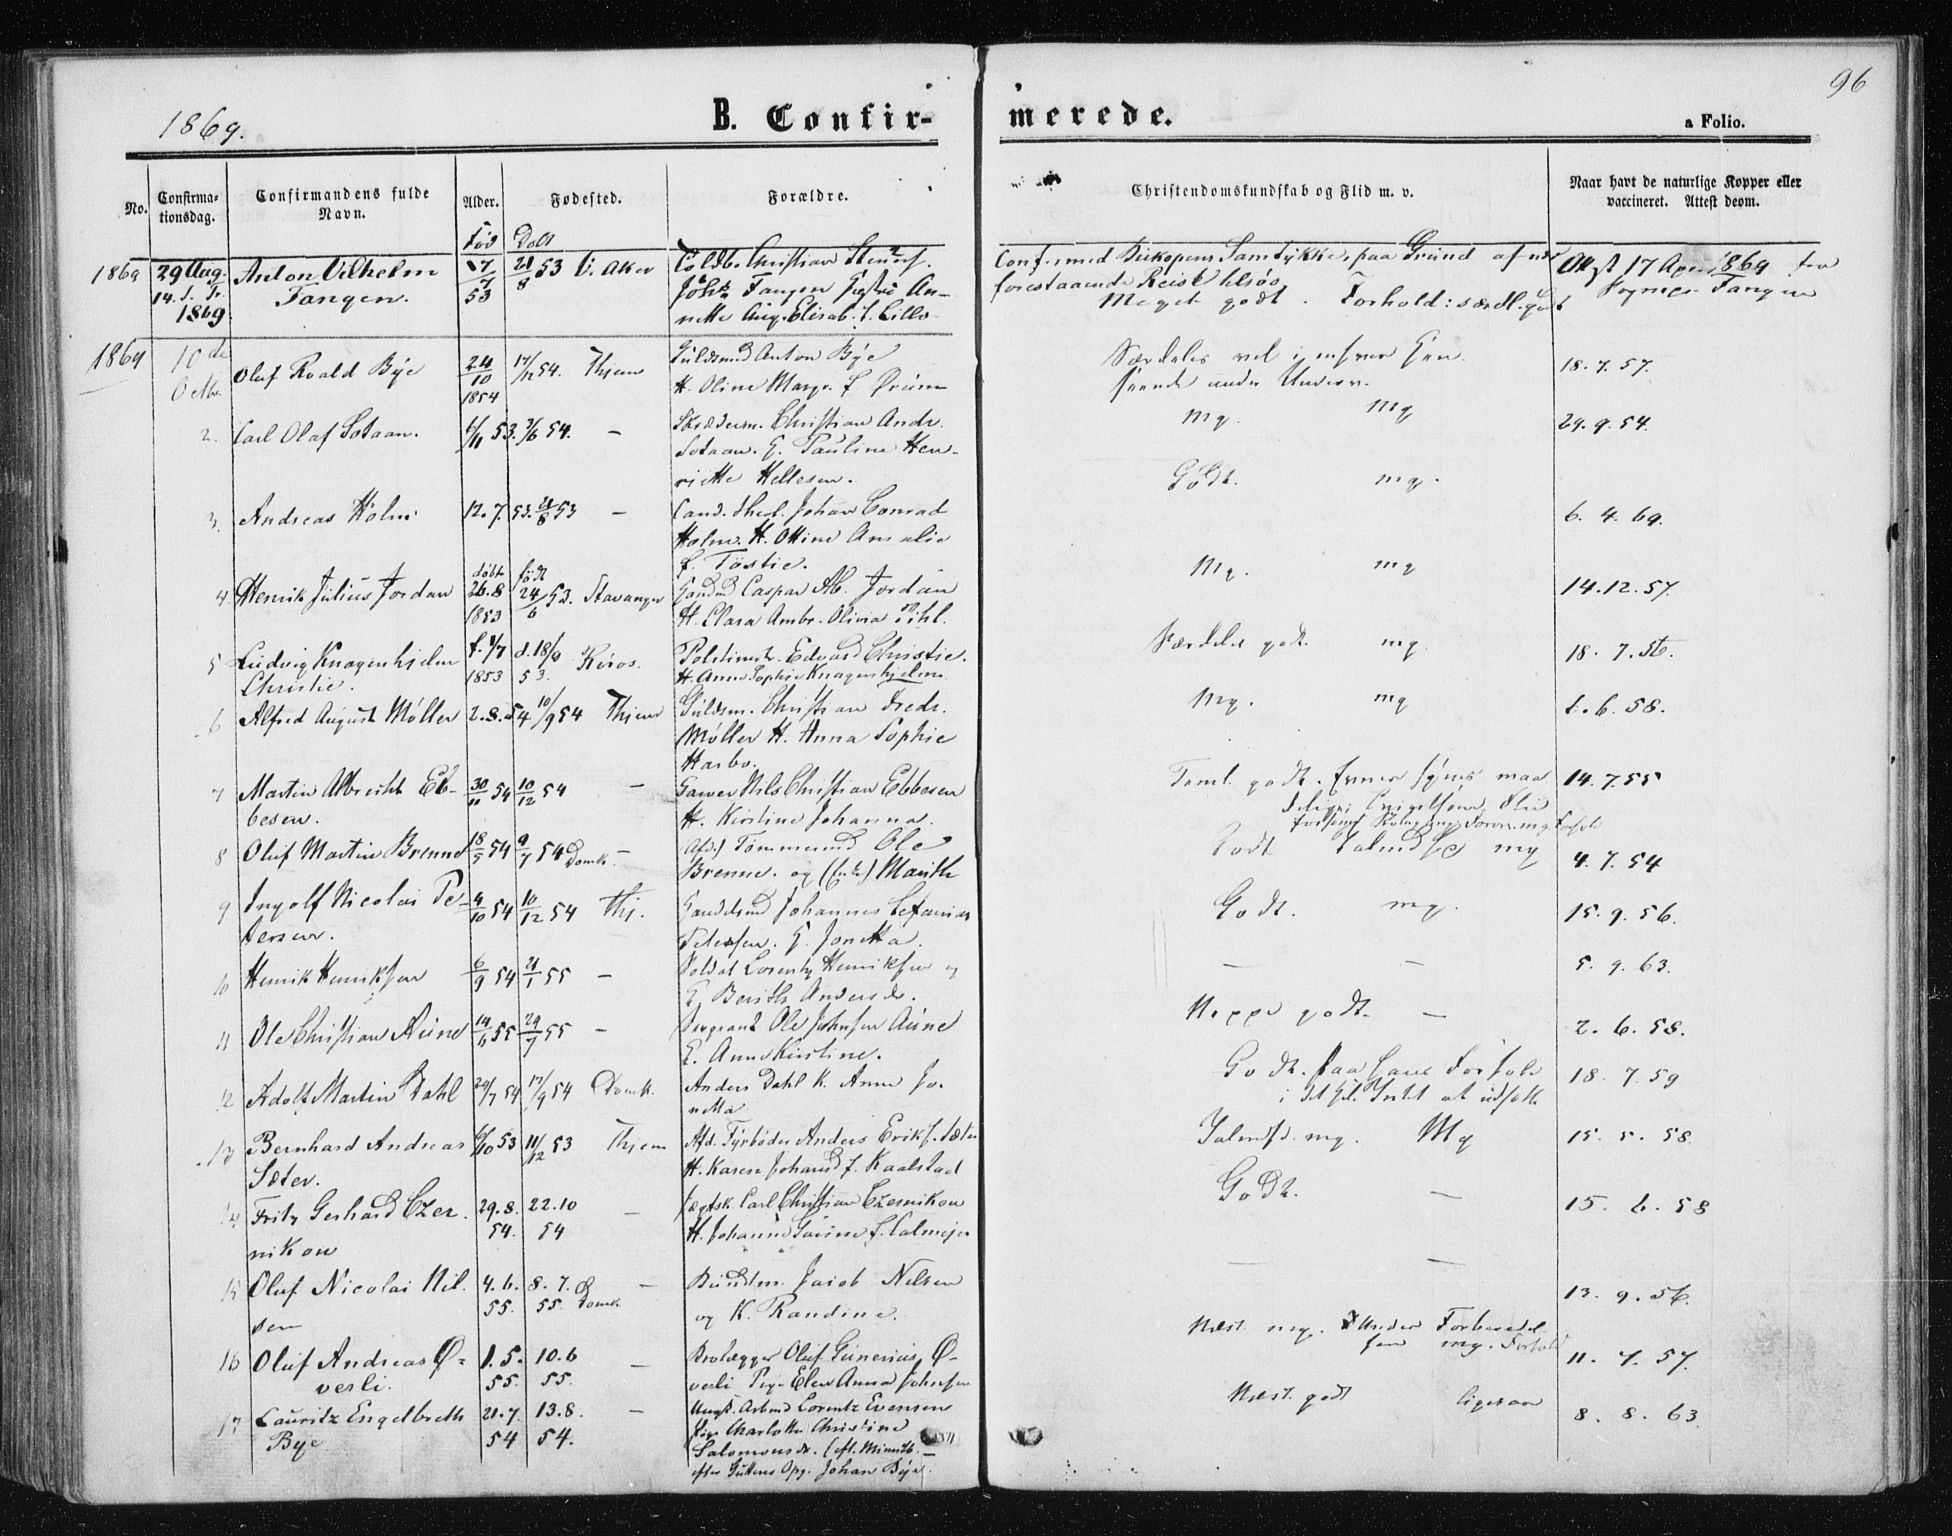 96
1869.
B. Confir-
merede.
a Folio.
No.
Confirma-
tionsdag.
Confirmandens fulde
Navn.
Alder.
Fødested.
Forældre.
Christendomskundskab og Flid m. v.
Naar havt de naturlige Kopper eller
vaccineret. Attest derom.
Fød Døbt
1869 29 Aug. Anton Vilhelm 21/8 53 V. Aker Christian
14. S. Tr. Tangen. 53 Tangen An-
1869 nette Aug. Elisab. f. Lillo
Conf. med Biskopens Samtykke, paa Grund af
forestaaende Reise
Meget godt. Forhold: særdl. godt
17 April 1869
Tangen
1869 10de Octbr. Oluf Roald Bye 24/10 1854 17/12 54. Thjem Guldsmed Anton Bye
H. Oline Margr. f.
Særdeles vel
under Underv.
18. 7. 57.
2. Carl Olaf Sotaan. 6/11 53. 3/6 54. — Skræderm. Christian Andr.
Sotaan. E. Pauline Hen-
riette Hellesen.
mg. mg 29. 9. 54.
3. Andreas Holm 12. 7. 53. 21/8 53 — Cand. theol. Johan Conrad
Holm. H. Ottine Amalie
f. Tostie.
Godt. mg. 6. 4. 69.
4 Henrik Julius Jordan døbt 26.8 1853 født 24/6 53. Stavanger Caspar Jordan
H. Clara Ambr. Olivia Pihl.
Mg. mg 14. 12. 57.
5 Ludvig Knagenhjelm f. 1/7 d. 18/9 Røros.
Christie. 1853 53. Edvard Christie.
H. Anne Sophie Knagenhjelm
Særdeles godt. mg. 18. 7. 56.
6 Alfred August Møller 2. 8. 54 10/9 54 Thjem Guldsm. Christian Fredr.
Møller H. Anna Sophie
Harbo.
Mg. mg 1. 6. 58.
7 Martin Albrecht Eb- 30/11 54 10/12 54 — Garver Nils Christian Ebbesen
besen. H. Kirstine Johanna.
Teml. godt. Evner synes maa-
14. 7. 55
8 Oluf Martin Brenne 18/5 54 9/7 54 Domk. — Afd. Tømmermd Ole
Brenne. og Marith
Godt mg 4. 7. 54
9 Ingolf Nicolai Pe- 4/10 54 10/12 54 Thj. Johannes
tersen. Petersen. E. Jonetta.
Godt. mg. 15. 9. 56.
10 Henrik Henriksen 6/9 54 21/1 55 — Soldat Lorentz Henriksen og
E. Berith Andersdr.
— — 5. 9. 63.
11 Ole Christian Aune 55 29/7 55 — Sergeant Ole Johnsen Aune
E. Anne Kirstine.
Neppe godt. — 2. 6. 58.
12 Adolf Martin Dahl 29/7 54 17/9 54 Domk. Anders Dahl K. Anne Jo-
netta
Godt. paa hans Forhold
i det hele Intet at udsætte
18. 7. 59
13 Bernhard Andreas 6/10 53 11/12 53 Thjem Afd. Fyrbøder Anders Eriks. Sæter
Sæter. H. Karen Johanne f. Kaalstad
mg. Mg 15. 5. 58.
14 Fritz Gerhard Czer- 29. 8. 22. 10 — Carl Christian Czernikow
nikow 54. 54 H. Johanne f. Calmeyer
Godt. — 15. 6. 58
15 Oluf Nicolai Nil- 4. 6. 8. 7. Domk. — Jacob Nilsen
sen 55. 55. og K. Randine.
— — 13. 9. 56.
16 Oluf Andreas Ø- 1. 5. 10. 6 — Brolægger Oluf Gunerius Ø-
verli. 55. 55. verli Pige Elen Anna Johnsen
Næst. mg. Under Forberedel-
sen mg. Forhold
11. 7. 57.
17 Lauritz Engelbreth 21. 7. 13. 8. — Ungk. Arbmd Lorentz Evensen
Bye 54 54. Pige Charlotte Christine
Salomonsdr. (eft. Minist.
efter Guttens Opg. Johan Bye.
Næst. godt ligesaa 8. 8. 63.